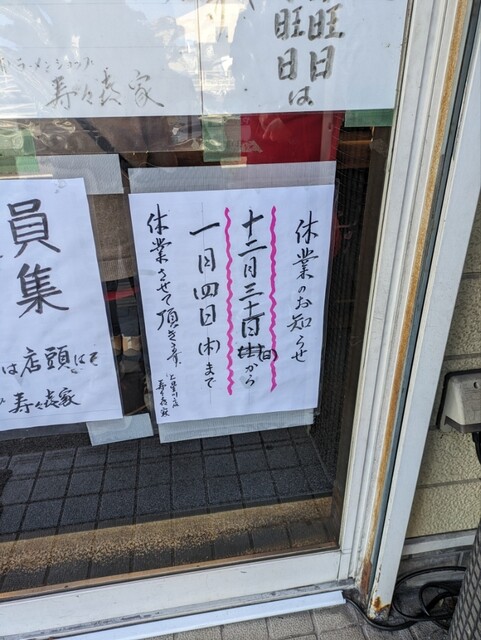 旺日
旺日は
ラーメンショップ
寿々喜家
休業のお知らせ
十二月三十一日(日)から
一月四日(木)まで
休業させて頂きます
上星川店
寿々喜家
員集
は店頭にて
寿々喜家